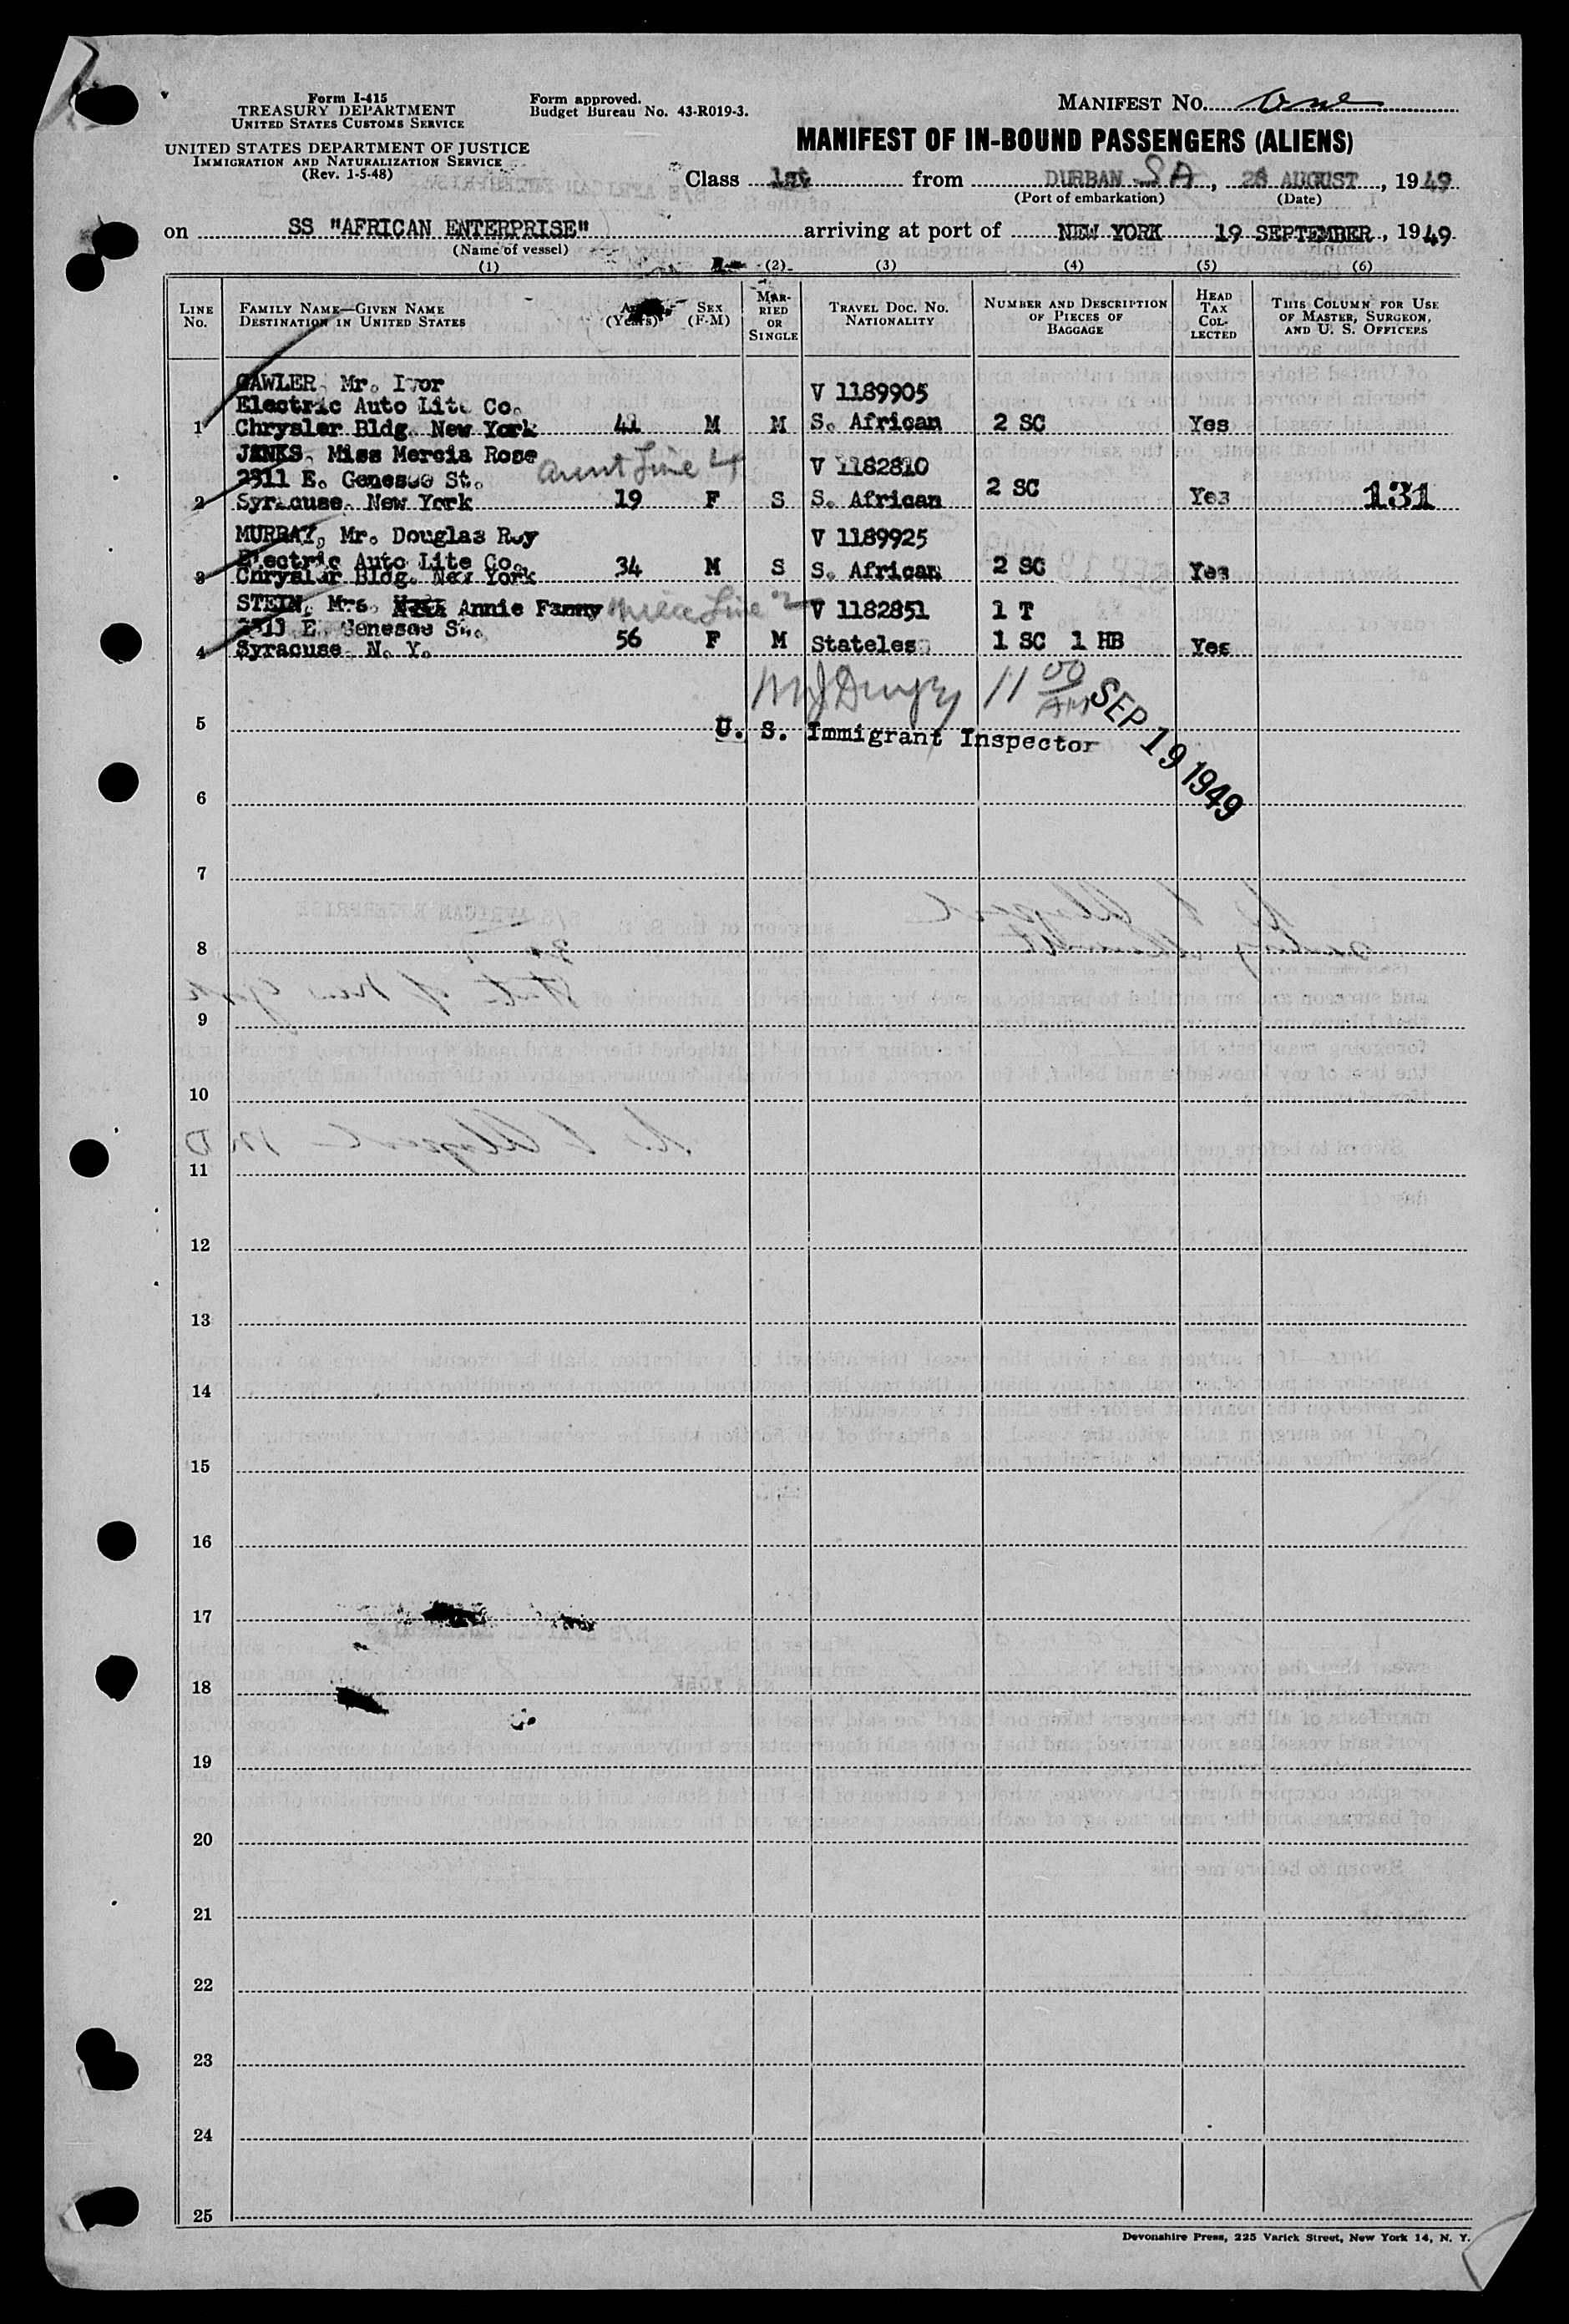 Form I-415
TREASURY DEPARTMENT
UNITED STATES CUSTOMS SERVICE
UNITED STATES DEPARTMENT OF JUSTICE
IMMIGRATION AND NATURALIZATION SERVICE
(Rev. 1-5-48)
Form approved.
Budget Bureau No. 43-R019-3.
MANIFEST No. One
MANIFEST OF IN-BOUND PASSENGERS (ALIENS)
Class 1st from DURBAN SA, 28 AUGUST, 1949
(Port of embarkation) (Date)
on SS "AFRICAN ENTERPRISE" arriving at port of NEW YORK 19 SEPTEMBER, 1949
(Name of vessel)
(1) (2) (3) (4) (5) (6)
LINE No.
FAMILY NAME—GIVEN NAME
DESTINATION IN UNITED STATES
(Years)
SEX (F-M)
MARRIED OR SINGLE
TRAVEL DOC. No. NATIONALITY
NUMBER AND DESCRIPTION OF PIECES OF BAGGAGE
HEAD TAX COLLECTED
THIS COLUMN FOR USE OF MASTER, SURGEON, AND U. S. OFFICERS
GAWLER, Mr. Ivor V 1189905
Electric Auto Lite Co.
1 Chrysler Bldg. New York M M S. African 2 SC Yes
JANKS, Miss Mercia Rose aunt Line 4 V 1182810
2311 E. Genesee St.
2 Syracuse, New York 19 F S S. African 2 SC Yes 131
MURRAY, Mr. Douglas Roy V 1189925
Electric Auto Lite Co.
3 Chrysler Bldg. New York 34 M S S. African 2 SC Yes
STEIN, Mrs. Annie Fanny niece Line 2 V 1182851 1 T
E. Genesee St.
4 Syracuse, N. Y. 56 F M Stateless 1 SC 1 HB Yes
11 00 AM SEP 19 1949
5 U. S. Immigrant Inspector
6
7
8
9
10
11
12
13
14
15
16
17
18
19
20
21
22
23
24
25
Devonshire Press, 225 Varick Street, New York 14, N. Y.